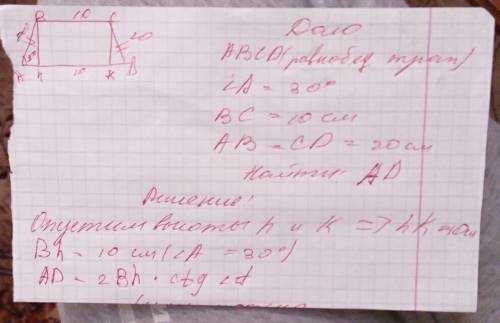 B 10 C
20 20
30°
A h 10 K D
Дано
ABCD (равнобед трап)
∠A = 30°
BC = 10 см
AB = CD = 20 см
Найти: AD
Решение:
Опустим высоты h и K => hK = 10 см
Bh = 10 см (∠A = 30°)
AD = 2Bh · ctg ∠A